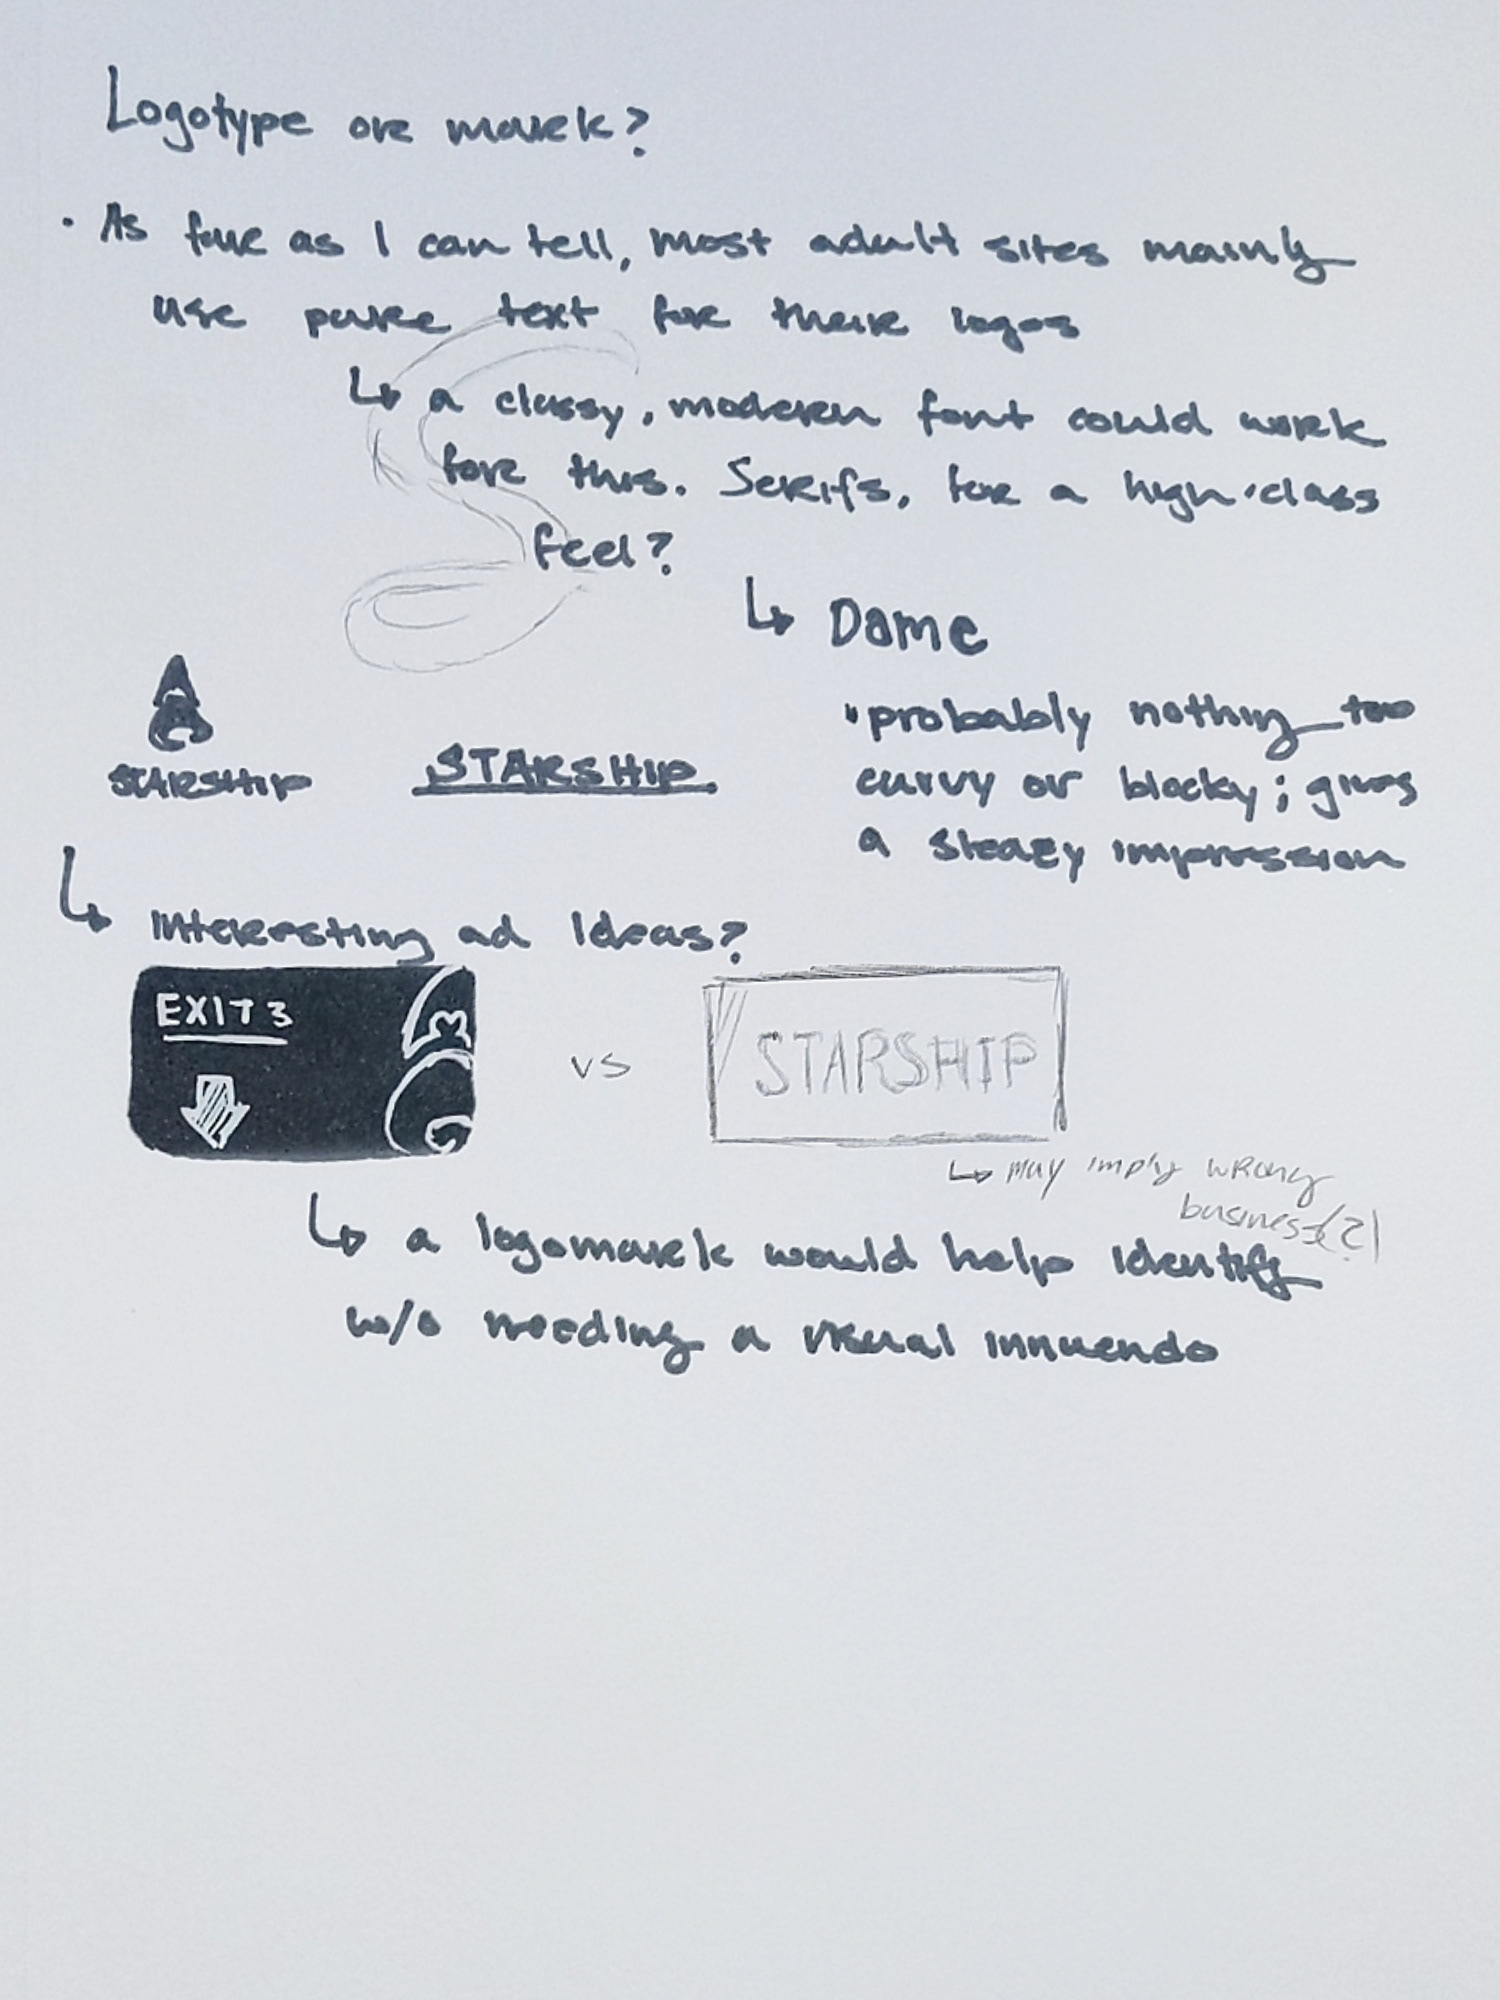 Logotype or mark?
· As far as I can tell, most adult sites mainly
use pure text for their logos
↳ a classy, modern font could work
for this. Serifs, for a high-class
feel?
↳ Dame
• probably nothing too
curvy or blocky; gives
a sleazy impression
STARSHIP
STARSHIP
↳ Interesting ad ideas?
EXIT 3
vs
STARSHIP
↳ may imply wrong
business(?)
↳ a logomark would help identify
w/o needing a visual innuendo